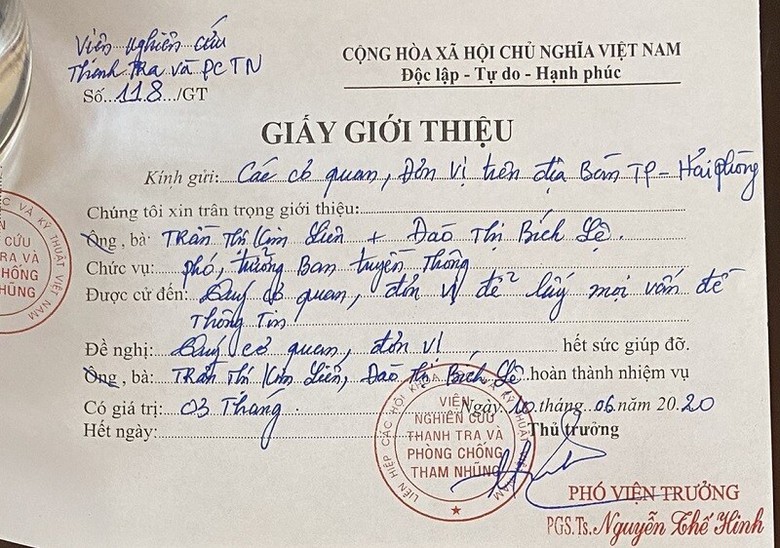 Viện nghiên cứu
Thanh Tra và PCTN
Số 118/GT
CỘNG HÒA XÃ HỘI CHỦ NGHĨA VIỆT NAM
Độc lập - Tự do - Hạnh phúc
GIẤY GIỚI THIỆU
Kính gửi: Các cơ quan, Đơn vị trên địa Bàn TP - Hải phòng
Chúng tôi xin trân trọng giới thiệu:
Ông, bà: Trần Thị Kim Liên + Đào Thị Bích Lệ.
Chức vụ: phó, trưởng Ban truyền Thông
Được cử đến: Quý cơ quan, đơn vị để lấy mọi vấn đề
Thông Tin
Đề nghị: Quý cơ quan, đơn vị hết sức giúp đỡ.
Ông, bà: Trần Thị Kim Liên, Đào Thị Bích Lệ hoàn thành nhiệm vụ
Có giá trị: 03 Tháng
Ngày 10 tháng 06 năm 2020
Hết ngày:
Thủ trưởng
LIÊN HIỆP CÁC HỘI KHOA HỌC VÀ KỸ THUẬT VIỆT NAM
VIỆN
NGHIÊN CỨU
THANH TRA VÀ
PHÒNG CHỐNG
THAM NHŨNG
PHÓ VIỆN TRƯỞNG
PGS.Ts. Nguyễn Thế Hinh
VÀ KỸ THUẬT VIỆT NAM
CỨU
TRA VÀ
CHỐNG
NHŨNG